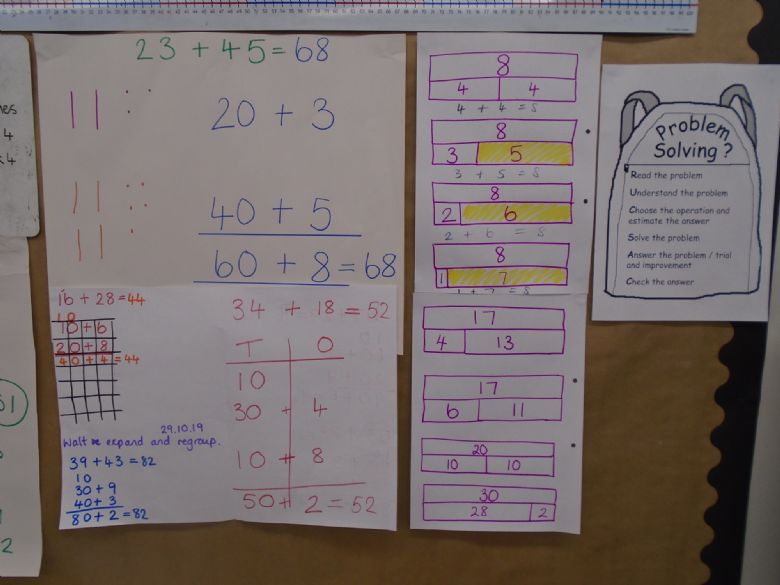 23 + 45 = 68
20 + 3
40 + 5
60 + 8 = 68
16 + 28 = 44
10
10 + 6
20 + 8
40 + 4 = 44
29.10.19
Walt expand and regroup.
39 + 43 = 82
10
30 + 9
40 + 3
80 + 2 = 82
34 + 18 = 52
T O
10
30 + 4
10 + 8
50 + 2 = 52
8
4 4
4 + 4 = 8
8
3 5
3 + 5 = 8
8
2 6
2 + 6 = 8
8
1 7
1 + 7 = 8
17
4 13
17
6 11
20
10 10
30
28 2
Problem
Solving?
Read the problem
Understand the problem
Choose the operation and
estimate the answer
Solve the problem
Answer the problem / trial
and improvement
Check the answer
4
2